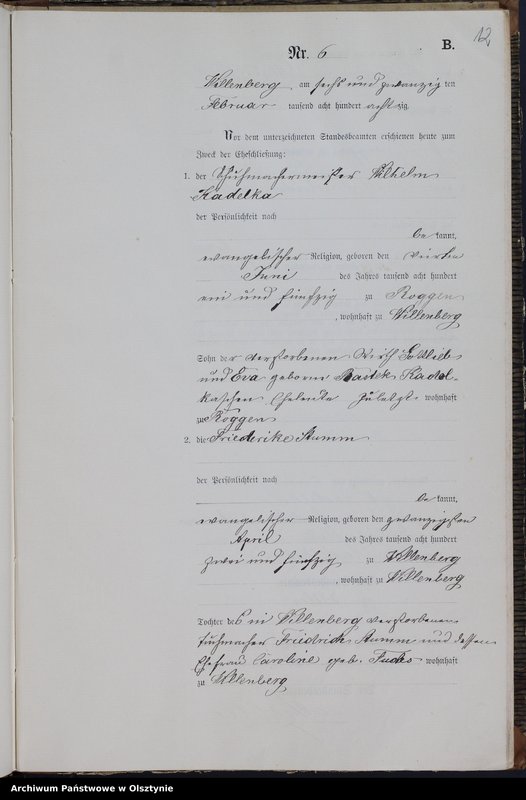 12
Nr. 6
B.
Willenberg, am sechs und zwanzig ten
Februar tausend acht hundert acht zig.
Vor dem unterzeichneten Standesbeamten erschienen heute zum
Zweck der Eheschließung:
1. der Schuhmachermeister Wilhelm
Kadelka
der Persönlichkeit nach
be kannt,
evangelischer Religion, geboren den vierten
Juni des Jahres tausend acht hundert
ein und fünfzig zu Roggen
, wohnhaft zu Willenberg
Sohn der verstorbenen Wirth Gottlieb
und Eva geborne Bastek Kadel-
kaschen Eheleute zuletzt wohnhaft
zu Roggen
2. die Friederike Stumm
der Persönlichkeit nach
be kannt,
evangelischer Religion, geboren den zwanzigsten
April des Jahres tausend acht hundert
zwei und fünfzig zu Willenberg
, wohnhaft zu Willenberg
Tochter des in Willenberg verstorbenen
Tuchmacher Friedrich Stumm und dessen
Ehefrau Caroline geb. wohnhaft
zu Willenberg
Archiwum Państwowe w Olsztynie